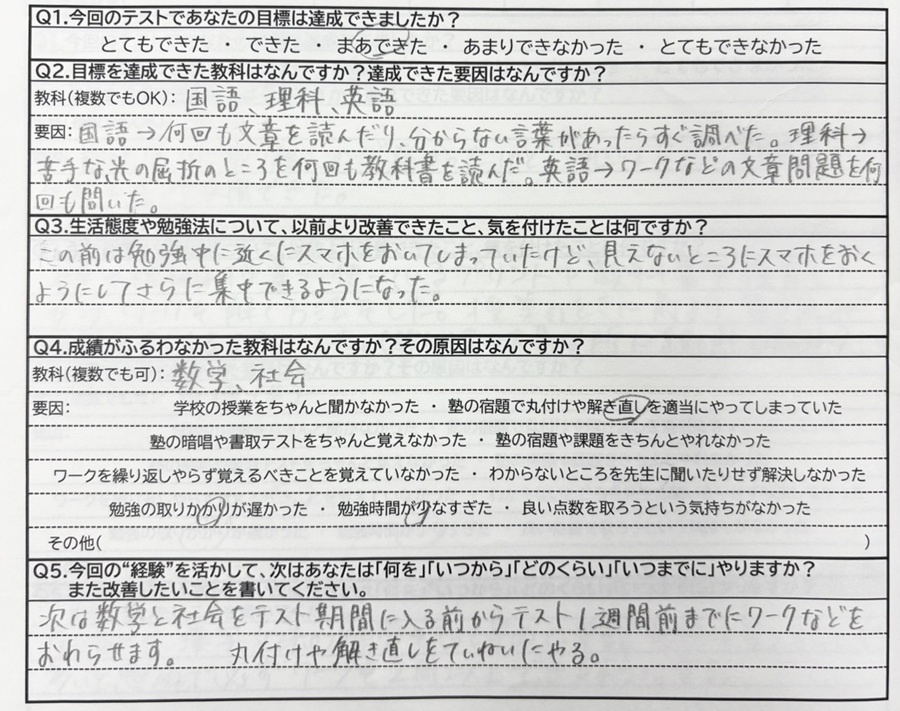 Q1.今回のテストであなたの目標は達成できましたか？
とてもできた ・ できた ・ まあできた ・ あまりできなかった ・ とてもできなかった
Q2.目標を達成できた教科はなんですか？達成できた要因はなんですか？
教科(複数でもOK): 国語、理科、英語
要因: 国語→何回も文章を読んだり、分からない言葉があったらすぐ調べた。理科→
苦手な光の屈折のところを何回も教科書を読んだ。英語→ワークなどの文章問題を何
回も問いた。
Q3.生活態度や勉強法について、以前より改善できたこと、気を付けたことは何ですか？
この前は勉強中に近くにスマホをおいてしまっていたけど、見えないところにスマホをおく
ようにしてさらに集中できるようになった。
Q4.成績がふるわなかった教科はなんですか？その原因はなんですか？
教科(複数でも可): 数学、社会
要因: 学校の授業をちゃんと聞かなかった ・ 塾の宿題で丸付けや解き直しを適当にやってしまっていた
塾の暗唱や書取テストをちゃんと覚えなかった ・ 塾の宿題や課題をきちんとやれなかった
ワークを繰り返しやらず覚えるべきことを覚えていなかった ・ わからないところを先生に聞いたりせず解決しなかった
勉強の取りかかりが遅かった ・ 勉強時間が少なすぎた ・ 良い点数を取ろうという気持ちがなかった
その他( )
Q5.今回の“経験”を活かして、次はあなたは「何を」「いつから」「どのくらい」「いつまでに」やりますか？
また改善したいことを書いてください。
次は数学と社会をテスト期間に入る前からテスト1週間前までにワークなどを
おわらせます。 丸付けや解き直しをていねいにやる。